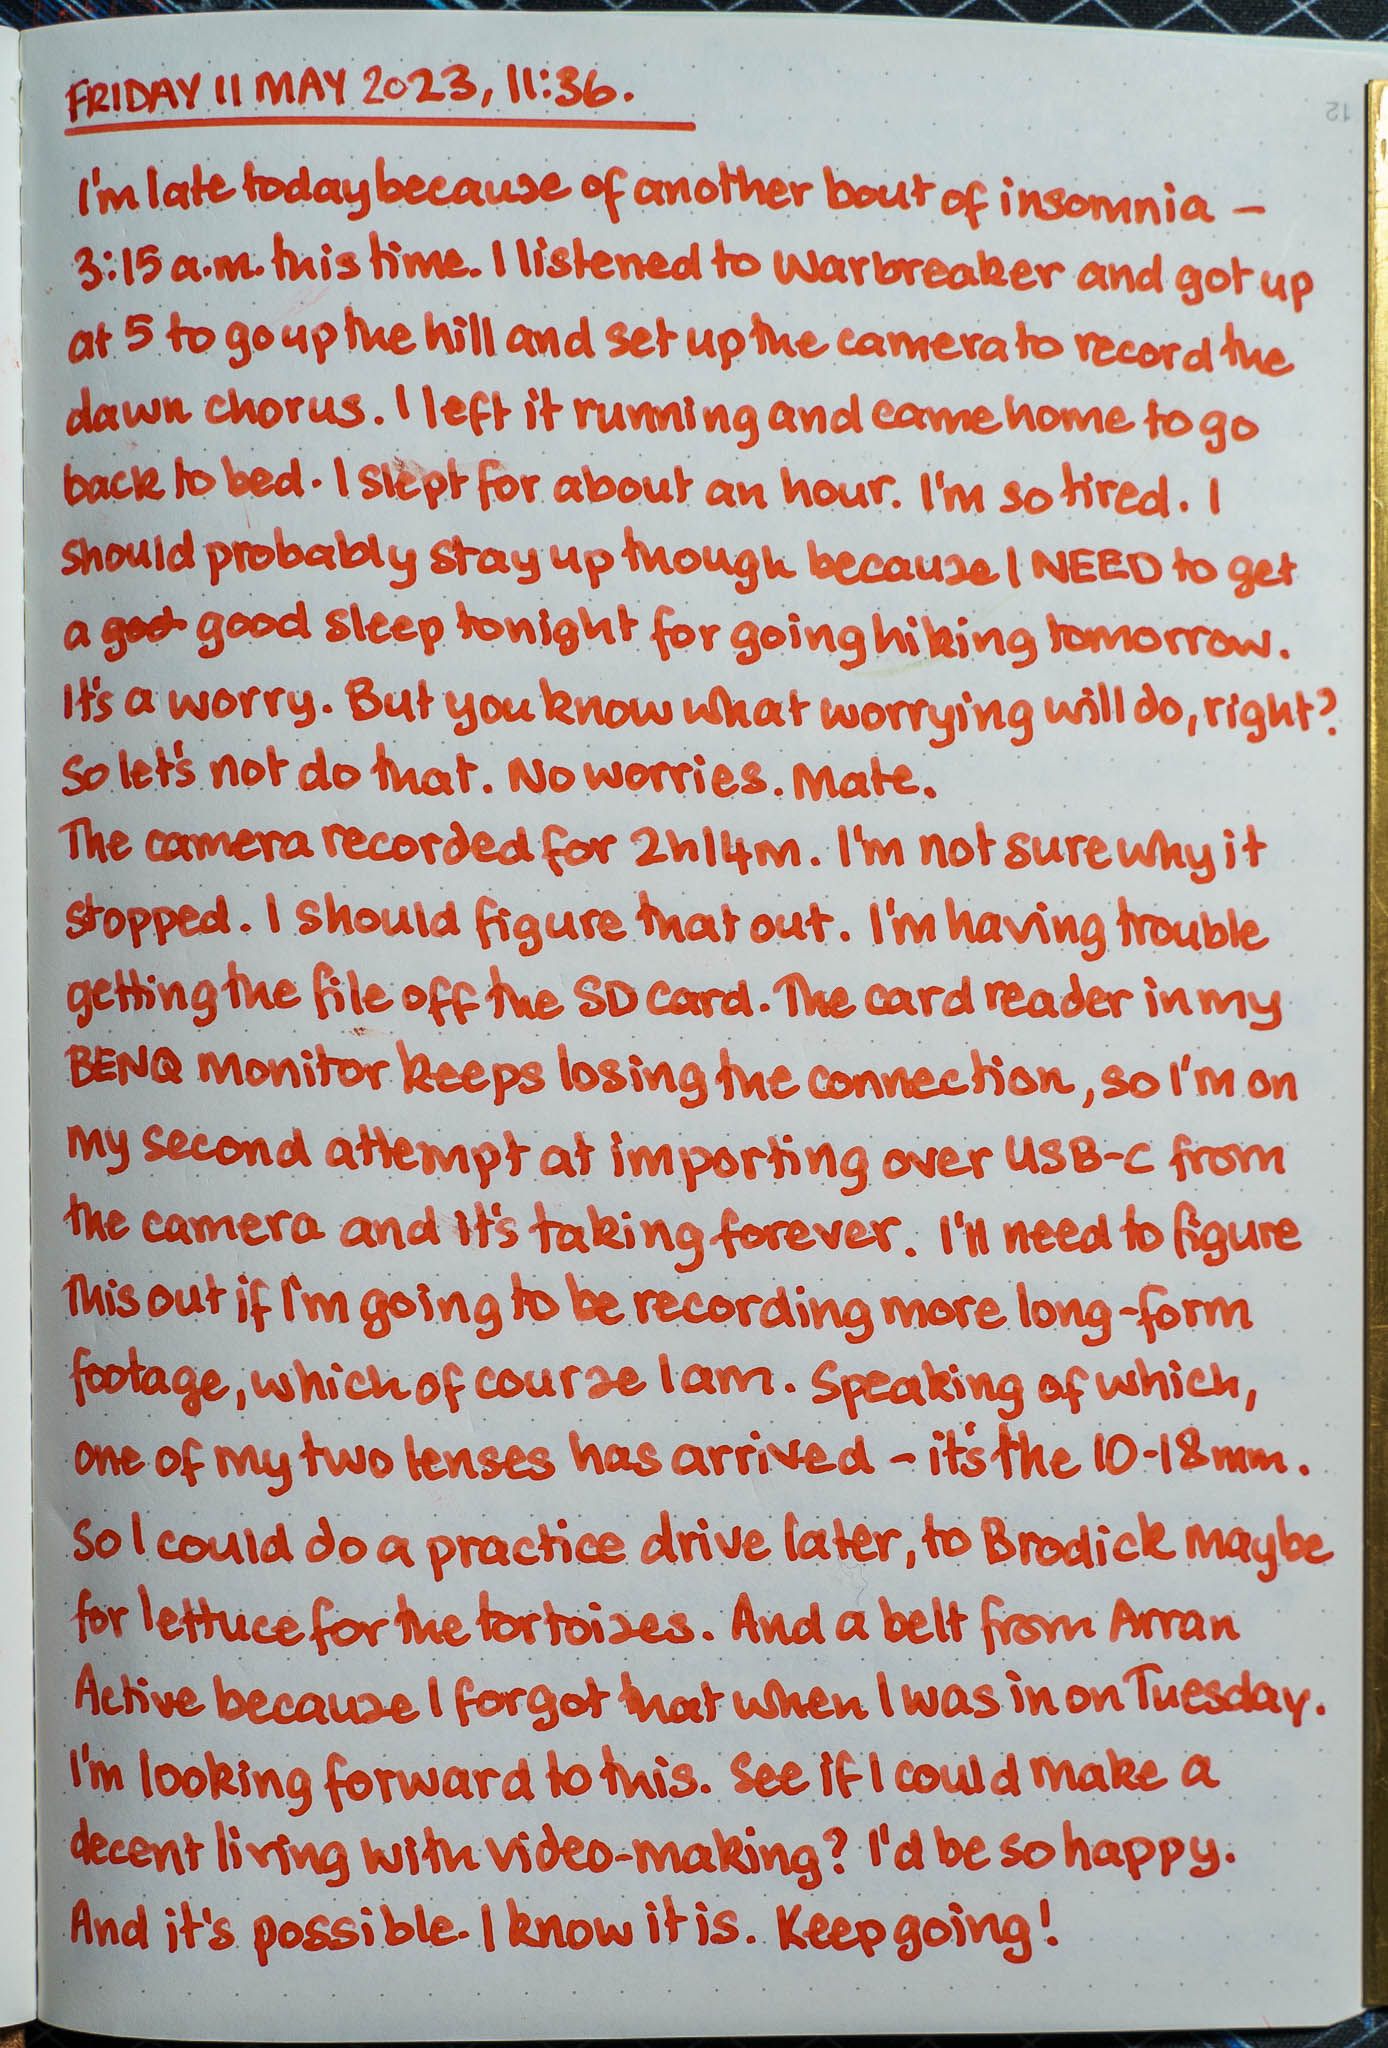 FRIDAY 11 MAY 2023, 11:36.
12
I'm late today because of another bout of insomnia –
3:15 a.m. this time. I listened to Warbreaker and got up
at 5 to go up the hill and set up the camera to record the
dawn chorus. I left it running and came home to go
back to bed. I slept for about an hour. I'm so tired. I
should probably stay up though because I NEED to get
a good sleep tonight for going hiking tomorrow.
It's a worry. But you know what worrying will do, right?
So let's not do that. No worries. Mate.
The camera recorded for 2h14m. I'm not sure why it
stopped. I should figure that out. I'm having trouble
getting the file off the SD card. The card reader in my
BENQ monitor keeps losing the connection, so I'm on
my second attempt at importing over USB-C from
the camera and it's taking forever. I'll need to figure
this out if I'm going to be recording more long-form
footage, which of course I am. Speaking of which,
one of my two lenses has arrived – it's the 10-18mm.
So I could do a practice drive later, to Brodick maybe
for lettuce for the tortoises. And a belt from Arran
Active because I forgot that when I was in on Tuesday.
I'm looking forward to this. See if I could make a
decent living with video-making? I'd be so happy.
And it's possible. I know it is. Keep going!